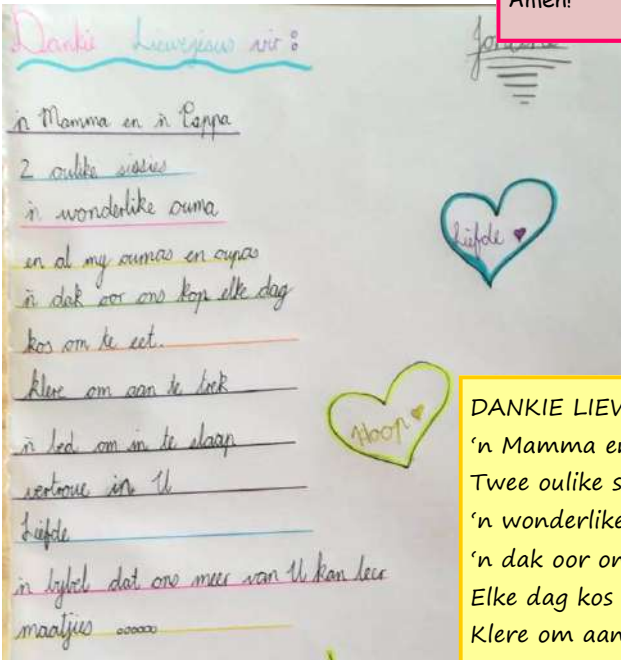 Amen!
Dankie Liewejesus vir:
'n Mamma en 'n Pappa
2 oulike sissies
'n wonderlike ouma
en al my oumas en oupas
'n dak oor ons kop elke dag
kos om te eet.
klere om aan te trek
'n bed om in te slaap
vertroue in U
Liefde
'n bybel dat ons meer van U kan leer
maatjies oooooo
Liefde
Hoop
DANKIE LIEV
'n Mamma en
Twee oulike s
'n wonderlike
'n dak oor on
Elke dag kos
Klere om aan